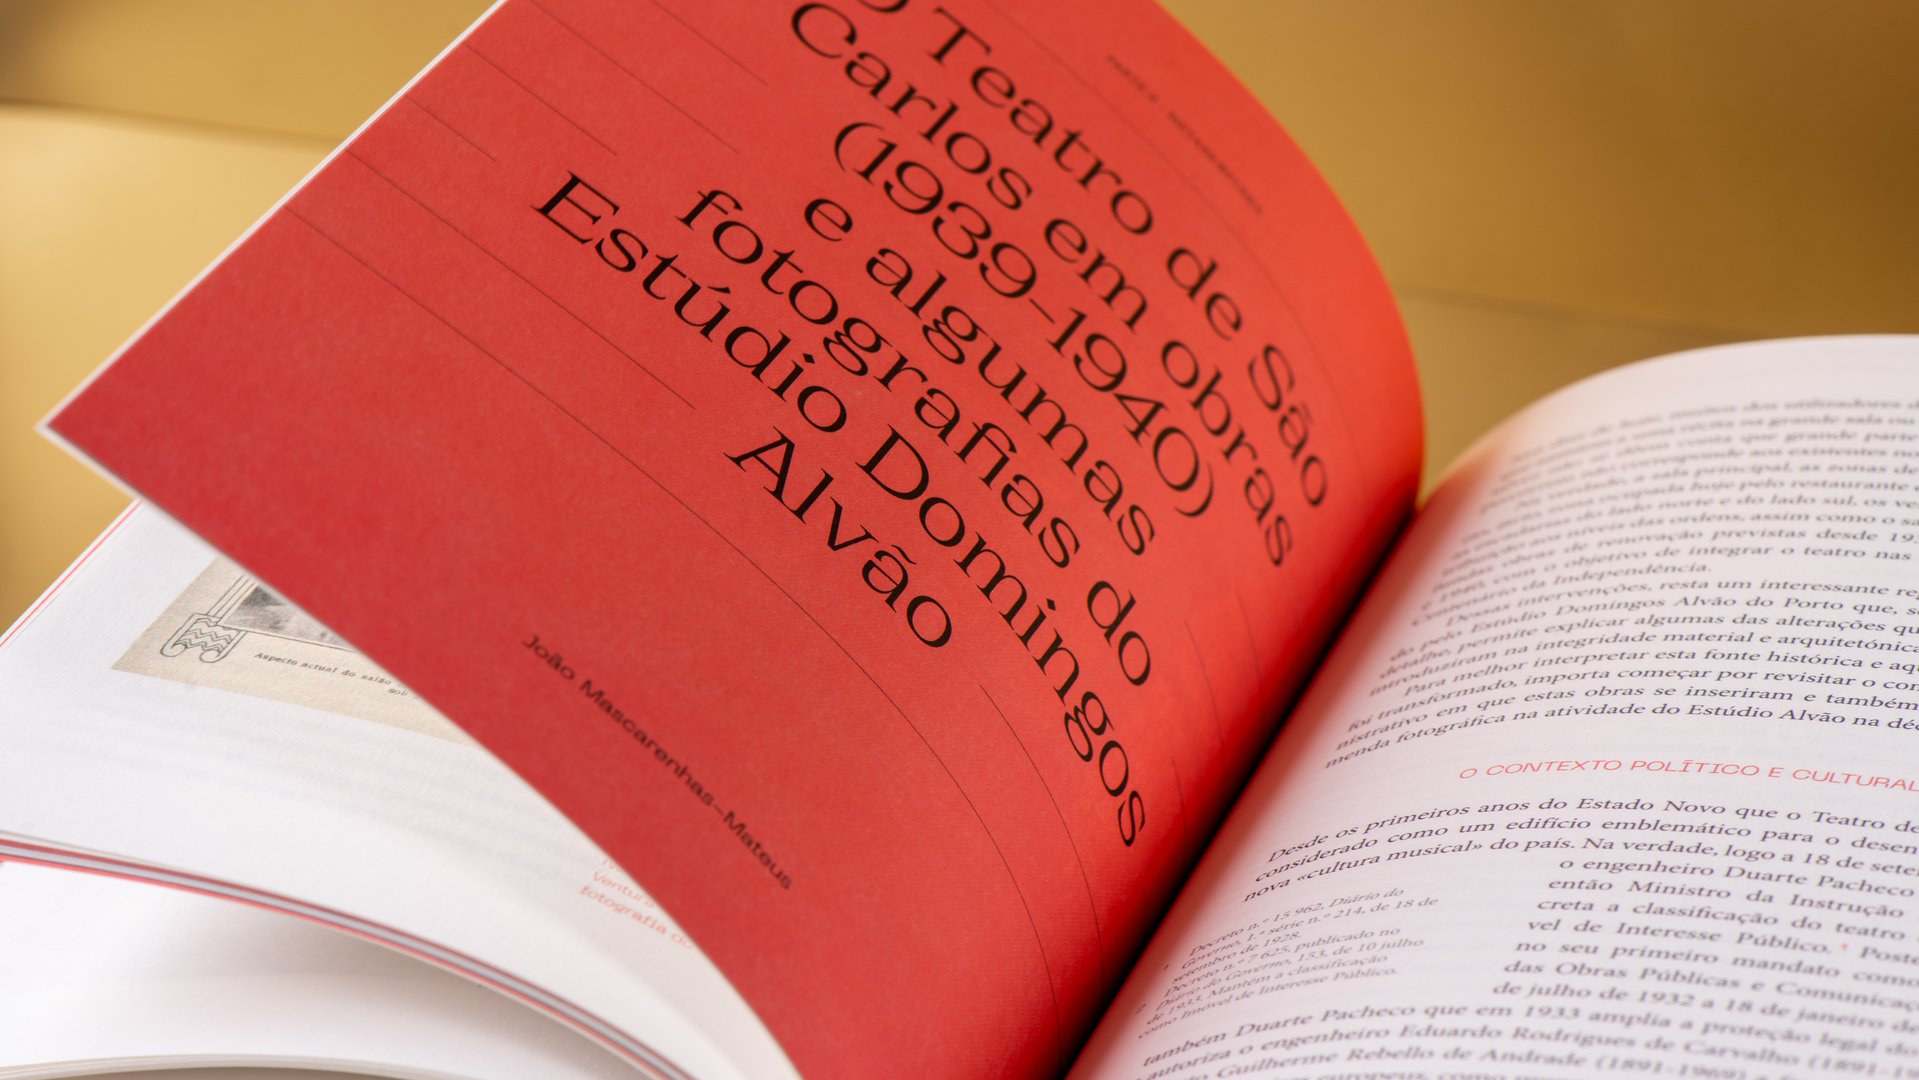 O Teatro de São
Carlos em obras
(1939–1940)
e algumas
fotografias do
Estúdio Domingos
Alvão
João Mascarenhas-Mateus
Aspecto actual do salão
sob
Ventur
fotografia do
grande sala ou
que grande parte
não corresponde aos existentes no
Na verdade, a sala principal, as zonas de
ocupada hoje pelo restaurante
do lado norte e do lado sul, os ve
ao níveis das ordens, assim como o sa
obras de renovação previstas desde 193
e 1940, com o objetivo de integrar o teatro nas
Centenário da Independência.
Dessas intervenções, resta um interessante re
do pelo Estúdio Domingos Alvão do Porto que, s
detalhe, permite explicar algumas das alterações qu
introduziram na integridade material e arquitetónica
Para melhor interpretar esta fonte histórica e aq
foi transformado, importa começar por revisitar o con
nistrativo em que estas obras se inseriram e também
menda fotográfica na atividade do Estúdio Alvão na déc
O CONTEXTO POLÍTICO E CULTURAL
Desde os primeiros anos do Estado Novo que o Teatro de
considerado como um edifício emblemático para o desen
nova «cultura musical» do país. Na verdade, logo a 18 de sete
o engenheiro Duarte Pacheco
então Ministro da Instrução
creta a classificação do teatro
vel de Interesse Público. Poste
no seu primeiro mandato como
das Obras Públicas e Comunicaç
de julho de 1932 a 18 de janeiro de
também Duarte Pacheco que em 1933 amplia a proteção legal do
autoriza o engenheiro Eduardo Rodrigues de Carvalho (1891-
Guilherme Rebello de Andrade (1891-1969)
Decreto n.º 15 962, Diário do
Governo, 1.ª série n.º 214, de 18 de
setembro de 1928.
Decreto n.º 7 625, publicado no
Diário do Governo, 153, de 10 julho
de 1933. Mantém a classificação
como Imóvel de Interesse Público.